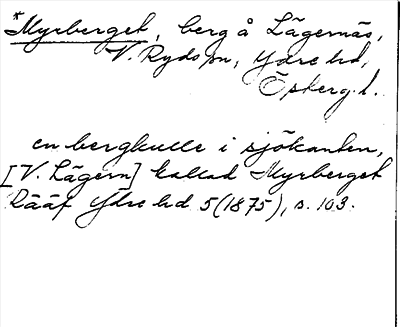 *Myrberget, berg å Lägernäs,
V. Ryds sn, Ydre hd,
Östergtl.
en bergkulle i sjökanten,
[V. Lägern] kallad Myrberget
Rääf Ydre hd 5(1875), s. 103.